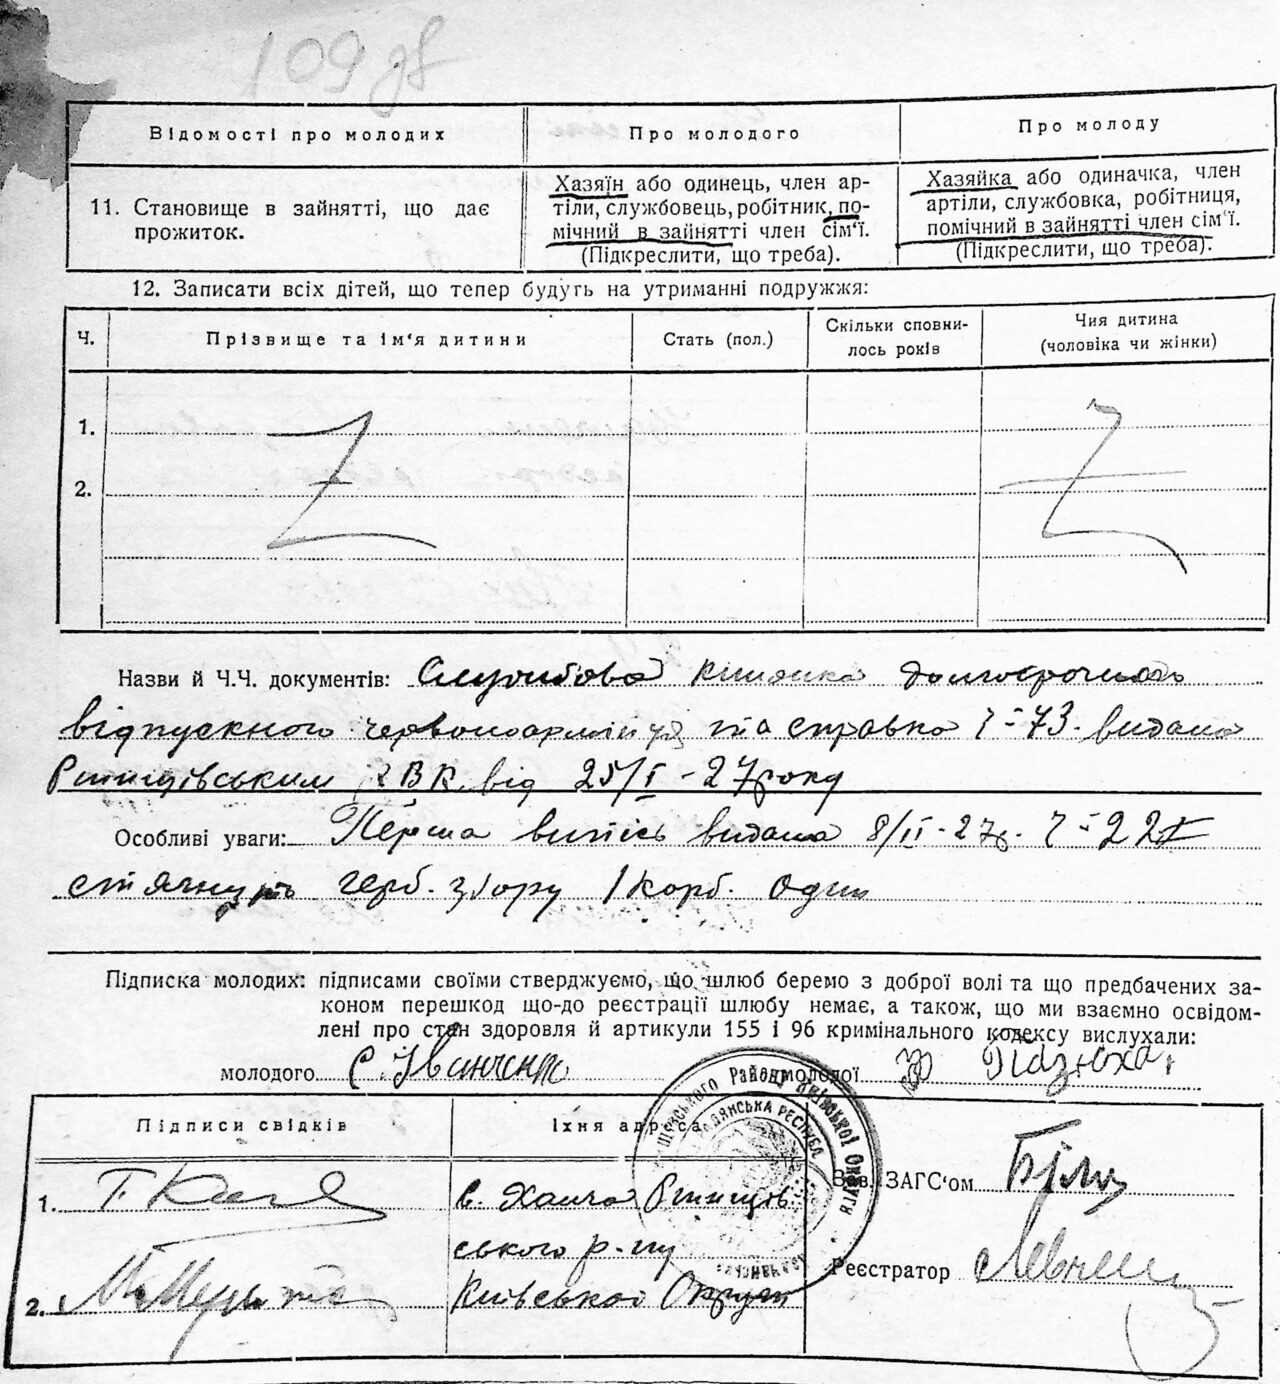 109 зв
Відомості про молодих
Про молодого
Про молоду
11. Становище в зайнятті, що дає
прожиток.
Хазяїн або одинець, член ар-
тіли, службовець, робітник, по-
мічний в зайнятті член сім'ї.
(Підкреслити, що треба).
Хазяйка або одиначка, член
артіли, службовка, робітниця,
помічний в зайнятті член сім'ї.
(Підкреслити, що треба).
12. Записати всіх дітей, що тепер будуть на утриманні подружжя:
Ч.
Прізвище та ім'я дитини
Стать (пол.)
Скільки сповни-
лось років
Чия дитина
(чоловіка чи жінки)
1.
2.
Назви й Ч.Ч. документів: Службова книжка
відпускного червоноармійця та справка 73. видана
Ржищівським РВК від 25/I - 27 року
Особливі уваги: Перша випись видана 8/II - 27 р.
стягнуть герб. збору 1 карб. один
Підписка молодих: підписами своїми стверджуємо, що шлюб беремо з доброї волі та що предбачених за-
коном перешкод що-до реєстрації шлюбу немає, а також, що ми взаємно освідом-
лені про стан здоровля й артикули 155 і 96 кримінального кодексу вислухали:
молодого С. Іванченко молодої
Підписи свідків
Їхня адреса
1.
в. Ханча Ржищів
ського р-ну
2.
Київської Округи
Зав. ЗАГС'ом
Реєстратор